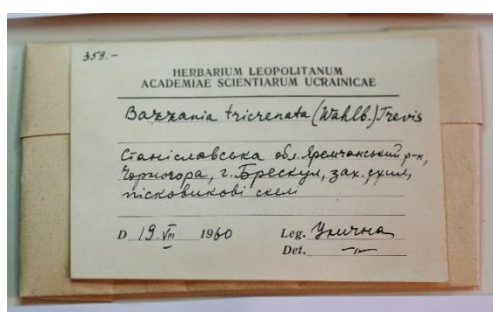 353.-
HERBARIUM LEOPOLITANUM
ACADEMIAE SCIENTIARUM UCRAINICAE
Bazzania tricrenata (Wahlb.) Trevis
Станіславська обл. Яремчанський р-н,
Чорногора, г. Брескул, зах. схил,
пісковикові скелі
D 19.VII 1960 Leg. Улична
Det. -"-